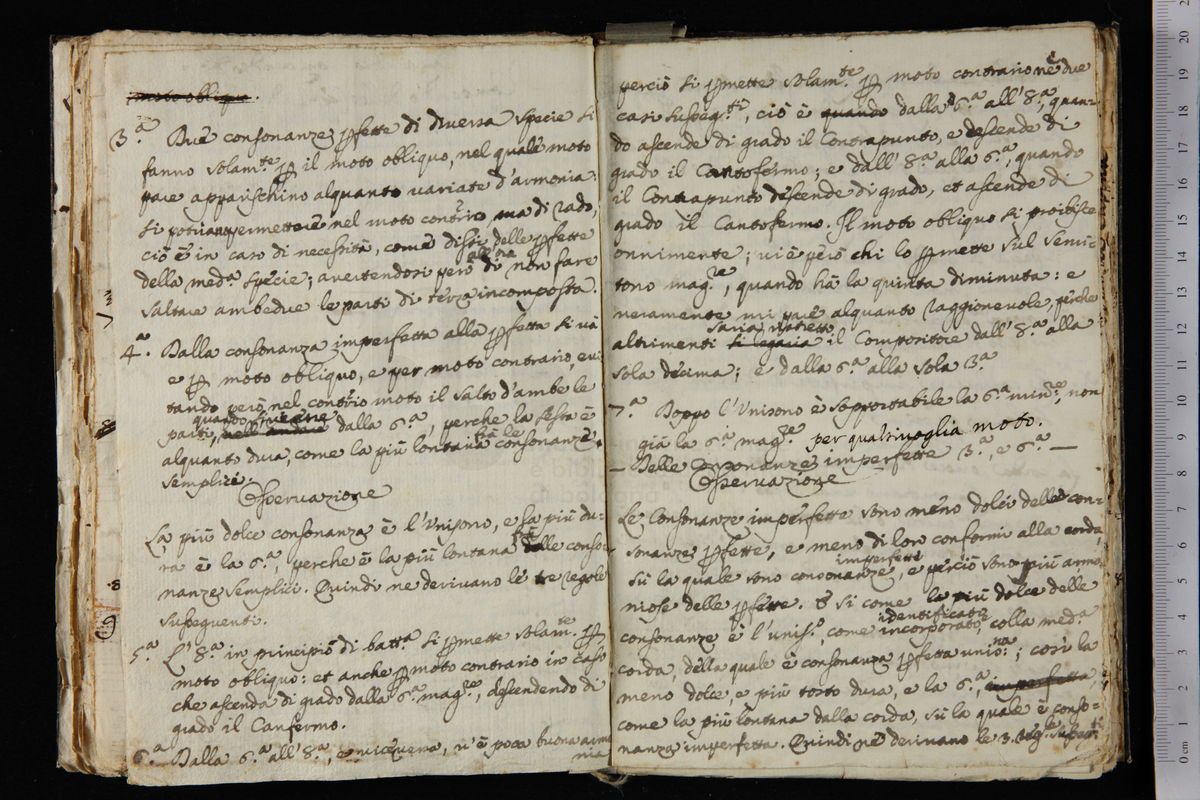 moto obliquo.
3.ª Due consonanze pfette di diversa specie si
fanno solam.te p il moto obliquo, nel quale moto
pare apparischino alquanto variate d'armonia:
si potranno permettere nel moto contr.rio ma di rado,
ciò è in caso di necessità, come dissi delle pfette
della med.ª specie; avertendosi però di non fare
saltare ambedue le parti di terza incomposta.
4.ª Dalla consonanza imperfetta alla pfetta si và
e p moto obliquo, e per moto contrario, evi
tando però nel contr.rio moto il salto d'ambe le
quando
parti, dalla 6.ª, perche la sesta è
alquanto dura, come la più lontana trà le consonanze
semplici.
Osservazione
La più dolce consonanza è l'Unisono, e la più du-
ra è la 6.ª, perche è la più lontana delle conso-
nanze semplici. Quindi ne derivano le tre regole
susseguenti.
5.ª L'8.ª in principio di batt.ª si pmette solam.te p
moto obliquo: et anche p moto contrario in caso
che ascenda di grado dalla 6.ª mag.re, descendendo di
grado il Canfermo.
6.ª Dalla 6.ª all'8.ª, e viceversa, v'è poca buona armo
nia
perciò si pmette solam.te p moto contrario ne due
casi susseg.ti, ciò è quando dalla 6.ª all'8.ª, quan-
do ascende di grado il Contrapunto, e descende di
grado il Cantofermo; e dall'8.ª alla 6.ª, quando
il Contrapunto descende di grado, et ascende di
grado il Cantofermo. Il moto obliquo si proibisce
onninamente; vi è però chi lo pmette sul semi-
tono mag.re, quando hà la quinta diminuta: e
veramente mi par alquanto raggionevole, perche
saria ristretto
altrimenti si legaria il Compositore dall'8.ª alla
sola decima; e dalla 6.ª alla sola 3.ª
7.ª Doppo l'Unisono è sopportabile la 6.ª min.re, non
già la 6.ª mag.re per qualsivoglia moto.
— Delle Consonanze imperfette 3.ª, e 6.ª —
Osservazione
Le Consonanze imperfette sono meno dolci delle con-
sonanze pfette, e meno di loro conformi alla corda,
imperfette
sù la quale sono consonanze, e perciò sono più armo-
niose delle pfette. E si come la più dolce delle
identificato
consonanze è l'unis.º, come incorporato colla med.ª
corda, della quale è consonanza pfetta; così la
meno dolce, e più tosto dura, e la 6.ª, imperfetta
come la più lontana dalla corda, sù la quale è conso-
nanza imperfetta. Quindi ne derivano le 3. reg.le susseg.ti